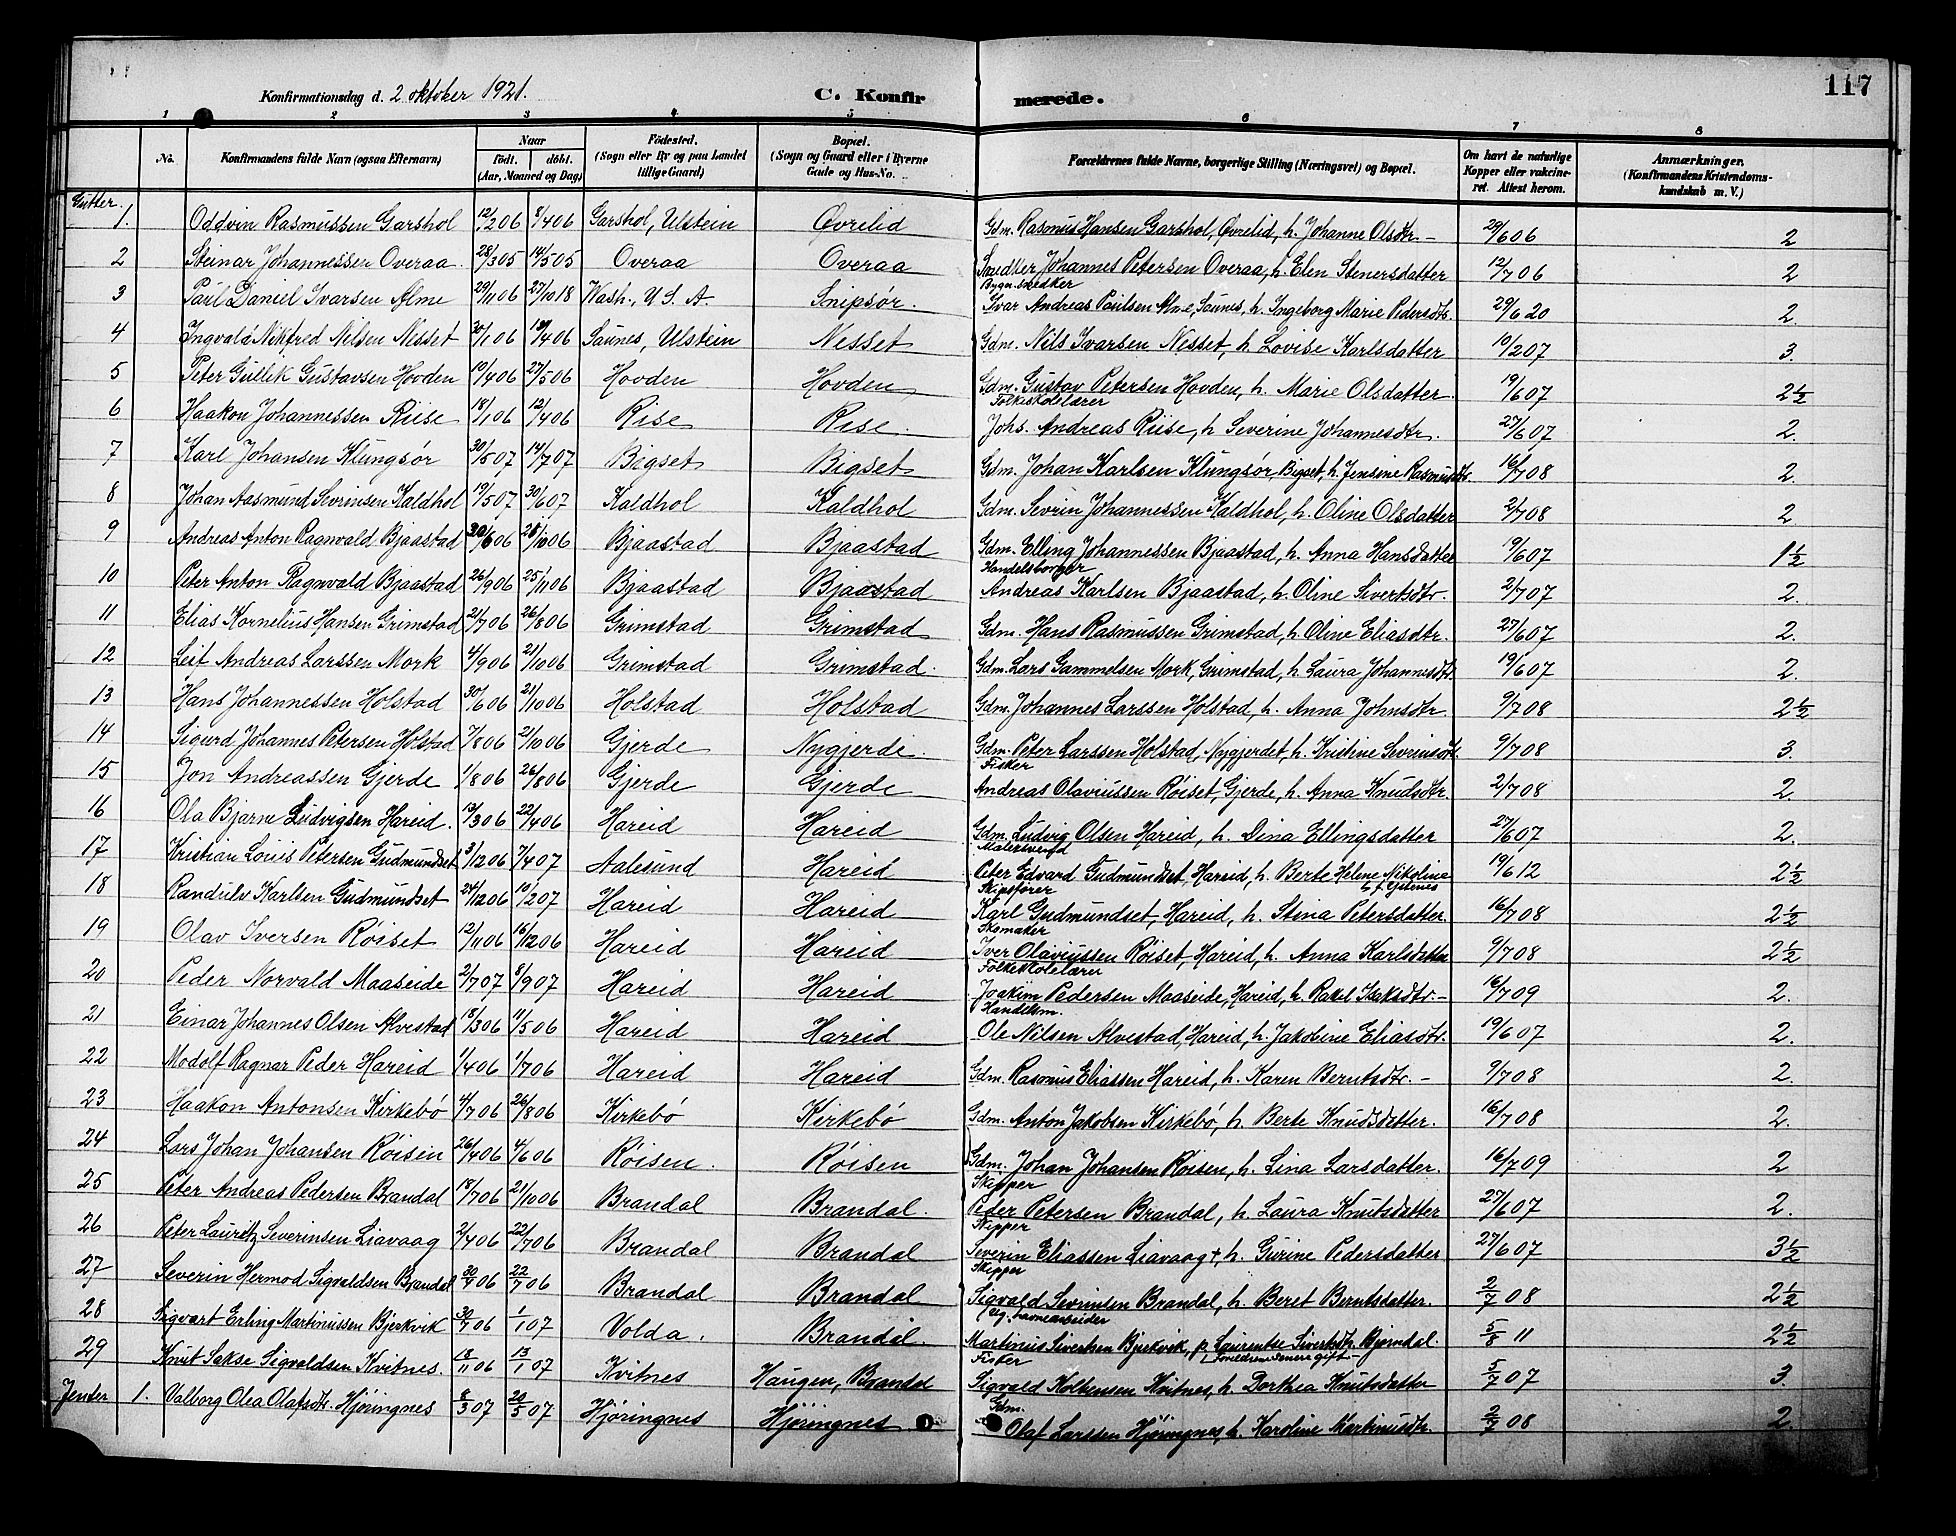 117
Konfirmationsdag d. 2 oktober 1921. C. Konfirmerede.
1 2 3 4 5 6 7 8
No. Konfirmandens fulde Navn (ogsaa Efternavn) Naar födt. döbt. (Aar, Maaned og Dag) Födested. (Sogn eller By og paa Landet tillige Gaard) Bopæl. (Sogn og Gaard eller i Byerne Gade og Hus-No. Forældrenes fulde Navne, borgerlige Stilling (Næringsvei) og Bopæl. Om havt de naturlige Kopper eller vakcineret. Attest herom. Anmærkninger. (Konfirmandens Kristendomskundskab m. V.)
Gutter.
1. Oddvin Rasmussen Garshol 12/2 06 8/4 06 Garshol, Ulstein Øvrelid Gdm. Rasmus Hansen Garshol, Øvrelid, h. Johanne Olsdtr. 29/6 06 2
2 Steinar Johannessen Overaa 28/3 05 14/5 05 Overaa Overaa Snedker Johannes Petersen Overaa, h. Elen Stenersdatter 12/7 06 2
3 Paul Daniel Ivarsen Alme 29/11 06 27/10 18 Wash., U.S.A. Snipsør. Bygn.snedker Ivar Andreas Paulsen Alme, Saunes, h. Ingeborg Marie Pedersdtr. 29/6 20 2.
4 Ingvald Nikfred Nilsen Nesset 30/1 06 /4 06 Saunes, Ulstein Nesset Gdm. Nils Ivarsen Nesset, h. Lovise Karlsdatter 10/2 07 3.
5 Peter Gullik Gustavsen Hovden 10/4 06 27/5 06 Hovden Hovden Gdm. Gustav Petersen Hovden, h. Marie Olsdatter 19/6 07 2½
6 Haakon Johannessen Riise 18/1 06 12/4 06 Rise Rise. Folkeskolelærer Johs. Andreas Riise, h Severine Johannesdtr. 27/6 07 2.
7 Karl Johansen Klungsør 30/5 07 14/7 07 Bigset Bigset Gdm. Johan Karlsen Klungsør, Bigset, h. Jensine Rasmusdtr. 16/7 08 2.
8 Johan Aasmund Sevrinsen Kaldhol 19/5 07 30/6 07 Kaldhol Kaldhol Gdm. Sevrin Johannessen Kaldhol, h. Oline Olsdatter 2/7 08 2
9 Andreas Anton Ragnvald Bjaastad /6 06 28/10 06 Bjaastad Bjaastad Gdm. Elling Johannessen Bjaastad, h. Anna Hansdatter 9/6 07 1½
10 Peter Anton Ragnvald Bjaastad 26/9 06 25/11 06 Bjaastad Bjaastad Handelsborger Andreas Karlsen Bjaastad, h. Oline Sivertsdtr. 2/7 07 2.
11 Elias Kornelius Hansen Grimstad 21/7 06 26/8 06 Grimstad Grimstad Gdm. Hans Rasmussen Grimstad, h. Oline Eliasdtr. 27/6 07 2.
12 Leif Andreas Larssen Mork 4/9 06 21/10 06 Grimstad Grimstad. Gdm. Lars Sammelsen Mork, Grimstad, h. Laura Johannesdtr. 19/6 07 2.
13 Hans Johannessen Holstad 30/6 06 21/10 06 Holstad Holstad Gdm. Johannes Larssen Holstad, h. Anna Johnsdtr. 9/7 08 2½
14 Sigurd Johannes Petersen Holstad 7/8 06 21/10 06 Gjerde Nygjerde. Gdm. Peter Larssen Holstad, Nygjerdet, h. Kristine Sevrinsdtr. 9/7 08 3.
15 Jon Andreassen Gjerde 1/8 06 26/8 06 Gjerde Gjerde Fisker Andreas Olaviussen Røiset, Gjerde, h. Anna Knudsdtr. 2/7 08 2.
16 Ola Bjarne Ludvigsen Hareid. 13/3 06 22/4 06 Hareid Hareid Gdm. Ludvig Olsen Hareid, h. Dina Ellingsdatter 27/6 07 2.
17 Kristian Louis Petersen Gudmundset 3/12 06 7/4 07 Aalesund Hareid Malersvend Peter Edvard Gudmundset, Hareid, h. Berte Helene Nikolina f. Gjetenes 19/6 12 2½
18 Randulv Karlsen Gudmundset 24/12 06 10/2 07 Hareid Hareid Skipsfører Karl Gudmundset, Hareid, h. Stina Petersdatter 16/7 08 2½
19 Olav Iversen Røiset 12/11 06 16/12 06 Hareid Hareid Skomaker Iver Olaviussen Røiset, Hareid, h. Anna Karlsdatter 9/7 08 2½
20 Peder Norvald Maaseide 2/7 07 8/9 07 Hareid Hareid Folkeskolelærer Joakim Pedersen Maaseide, Hareid, h. Rakel Isaksdtr. 16/7 09 2.
21 Einar Johannes Olsen Alvestad 18/3 06 11/5 06 Hareid Hareid Handelsm. Ole Nilsen Alvestad, Hareid, h. Jakobine Eliasdtr. 19/6 07 2.
22 Modolf Ragnar Peder Hareid 1/4 06 1/7 06 Hareid Hareid Gdm. Rasmus Eliassen Hareid, h. Karen Berntsdtr. 9/7 08 2.
23 Haakon Antonsen Kirkebø 4/7 06 26/8 06 Kirkebø Kirkebø Gdm. Anton Jakobsen Kirkebø, h. Berte Knudsdatter. 16/7 08 2.
24 Lars Johan Johansen Røisen 26/4 06 4/6 06 Røisen. Røisen Gdm. Johan Johansen Røisen, h. Lina Larsdatter. 16/7 09 2
25 Peter Andreas Pedersen Brandal 18/7 06 21/10 06 Brandal Brandal. Skipper Peder Petersen Brandal, h. Laura Knutsdatter 27/6 07 2.
26 Peter Lauritz Severinsen Liavaag 2/4 06 22/7 06 Brandal Brandal Skipper Severin Eliassen Liavaag +, h. Gurine Pedersdatter 27/6 07 3½
27 Severin Hermod Sigvaldsen Brandal 30/4 06 22/7 06 Brandal Brandal Skipper Sigvald Sevrinsen Brandal, h. Beret Berntsdatter. 2/7 08 2½
28 Sigvart Erling Martinussen Bjerkvik 30/7 06 1/1 07 Volda. Brandal. Ug. havnearbeider Martinus Sivertsen Bjerkvik, p. Laurentse Sivertsdtr. Bjørndal. Foreldrene senere gift 5/8 11 2½
29 Knut Sakse Sigvaldsen Kvitnes. 18/11 06 13/1 07 Kvitnes Haugen, Brandal Fisker Sigvald Koltensen Kvitnes, h. Dorthea Knutsdatter 5/7 07 3.
Jenter 1. Valborg Olea Olafsdtr. Hjøringnes 8/3 07 20/5 07 Hjøringnes Hjøringnes. Gdm. Olaf Larssen Hjøringnes, h. Karoline Martinusdtr. 2/7 08 2.